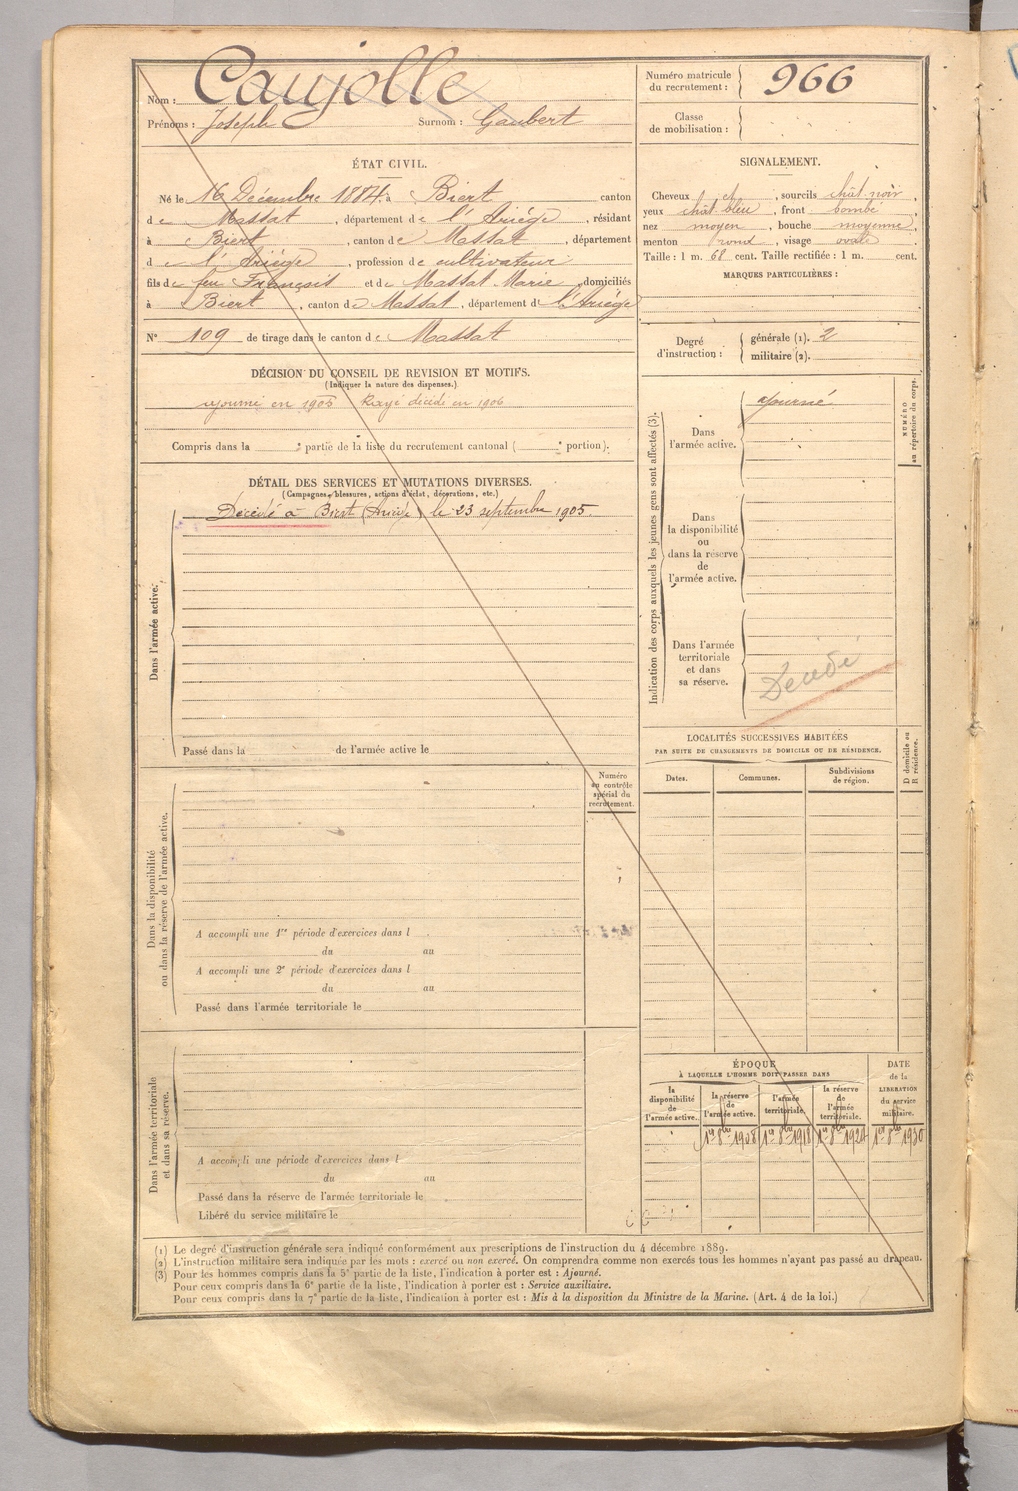 Nom : Caujolle
Prénoms : Joseph Surnom : Gaubert
Numéro matricule du recrutement : 966
Classe de mobilisation :
ÉTAT CIVIL.
Né le 16 Décembre 1884 à Biert canton
de Massat, département de l'Ariège, résidant
à Biert, canton de Massat, département
de l'Ariège, profession de cultivateur
fils de feu François et de Massat Marie, domiciliés
à Biert, canton de Massat, département de l'Ariège
N° 109 de tirage dans le canton de Massat
SIGNALEMENT.
Cheveux et, sourcils chât. noir,
yeux chât. bleu, front bombé,
nez moyen, bouche moyenne,
menton rond, visage ovale
Taille : 1 m. 68 cent. Taille rectifiée : 1 m. cent.
MARQUES PARTICULIÈRES :
Degré d'instruction : générale (1). 2
militaire (2).
DÉCISION DU CONSEIL DE REVISION ET MOTIFS.
(Indiquer la nature des dispenses.)
ajourné en 1905 Rayé décédé en 1906
Compris dans la e partie de la liste du recrutement cantonal ( e portion).
DÉTAIL DES SERVICES ET MUTATIONS DIVERSES.
(Campagnes, blessures, actions d'éclat, décorations, etc.)
Dans l'armée active.
Décédé à Biert (Ariège) le 23 septembre 1905.
Passé dans la de l'armée active le
Dans la disponibilité
ou dans la réserve de l'armée active.
Numéro
au contrôle
spécial du
recrutement.
A accompli une 1re période d'exercices dans l
du au
A accompli une 2e période d'exercices dans l
du au
Passé dans l'armée territoriale le
Dans l'armée territoriale
et dans sa réserve.
A accompli une période d'exercices dans l
du au
Passé dans la réserve de l'armée territoriale le
Libéré du service militaire le
Indication des corps auxquels les jeunes gens sont affectés (3).
NUMÉRO
au répertoire du corps.
Dans
l'armée active.
Ajourné
Dans
la disponibilité
ou
dans la réserve
de
l'armée active.
Dans l'armée
territoriale
et dans
sa réserve.
Décédé
LOCALITÉS SUCCESSIVES HABITÉES
PAR SUITE DE CHANGEMENTS DE DOMICILE OU DE RÉSIDENCE.
D domicile ou
R résidence.
Dates. Communes. Subdivisions
de région.
ÉPOQUE
À LAQUELLE L'HOMME DOIT PASSER DANS
DATE
de la
LIBÉRATION
du service
militaire.
la disponibilité de l'armée active.
la réserve de l'armée active.
l'armée territoriale.
la réserve de l'armée territoriale.
1er 8bre 1908 1er 8bre 1918 1er 8bre 1924 1er 8bre 1930
(1) Le degré d'instruction générale sera indiqué conformément aux prescriptions de l'instruction du 4 décembre 1889.
(2) L'instruction militaire sera indiquée par les mots : exercé ou non exercé. On comprendra comme non exercés tous les hommes n'ayant pas passé au drapeau.
(3) Pour les hommes compris dans la 5e partie de la liste, l'indication à porter est : Ajourné.
Pour ceux compris dans la 6e partie de la liste, l'indication à porter est : Service auxiliaire.
Pour ceux compris dans la 7e partie de la liste, l'indication à porter est : Mis à la disposition du Ministre de la Marine. (Art. 4 de la loi.)